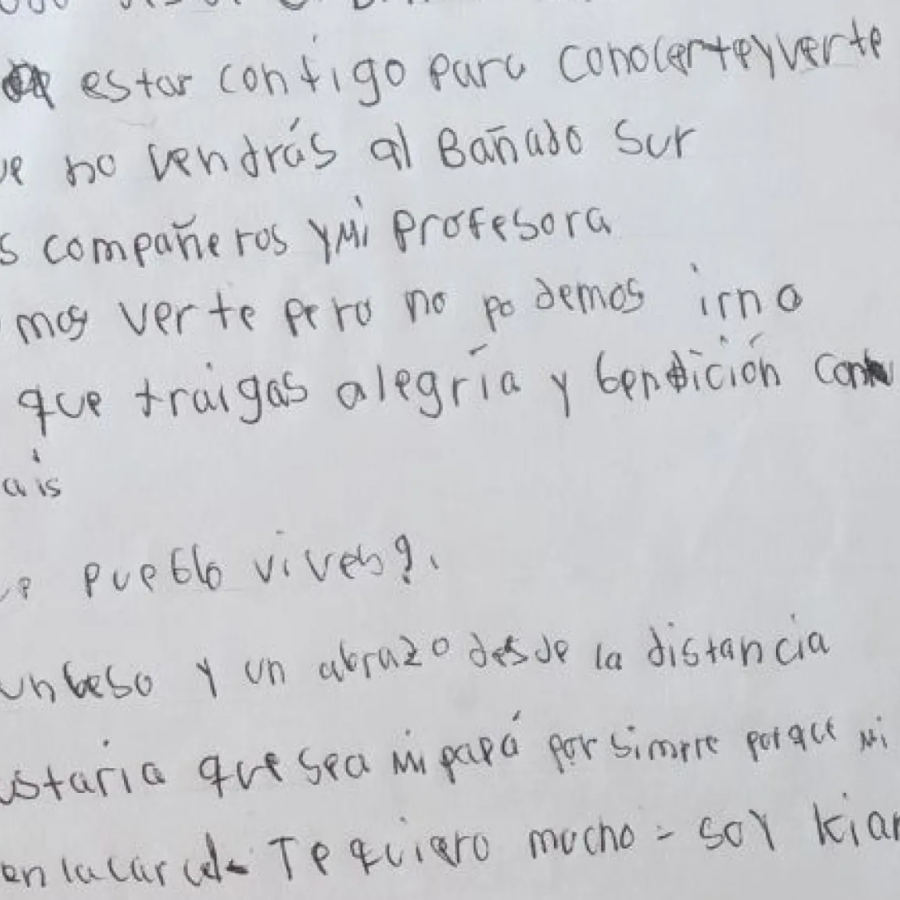 estar contigo para conocerte y verte
ue no vendrás al Bañado Sur
s compañeros y mi profesora
mos verte pero no podemos ir no
que traigas alegría y bendición con
ais
pueblo vives?.
un beso y un abrazo desde la distancia
ustaria que sea mi papá por simpre porque mi
en la carcel. Te quiero mucho - soy kiar